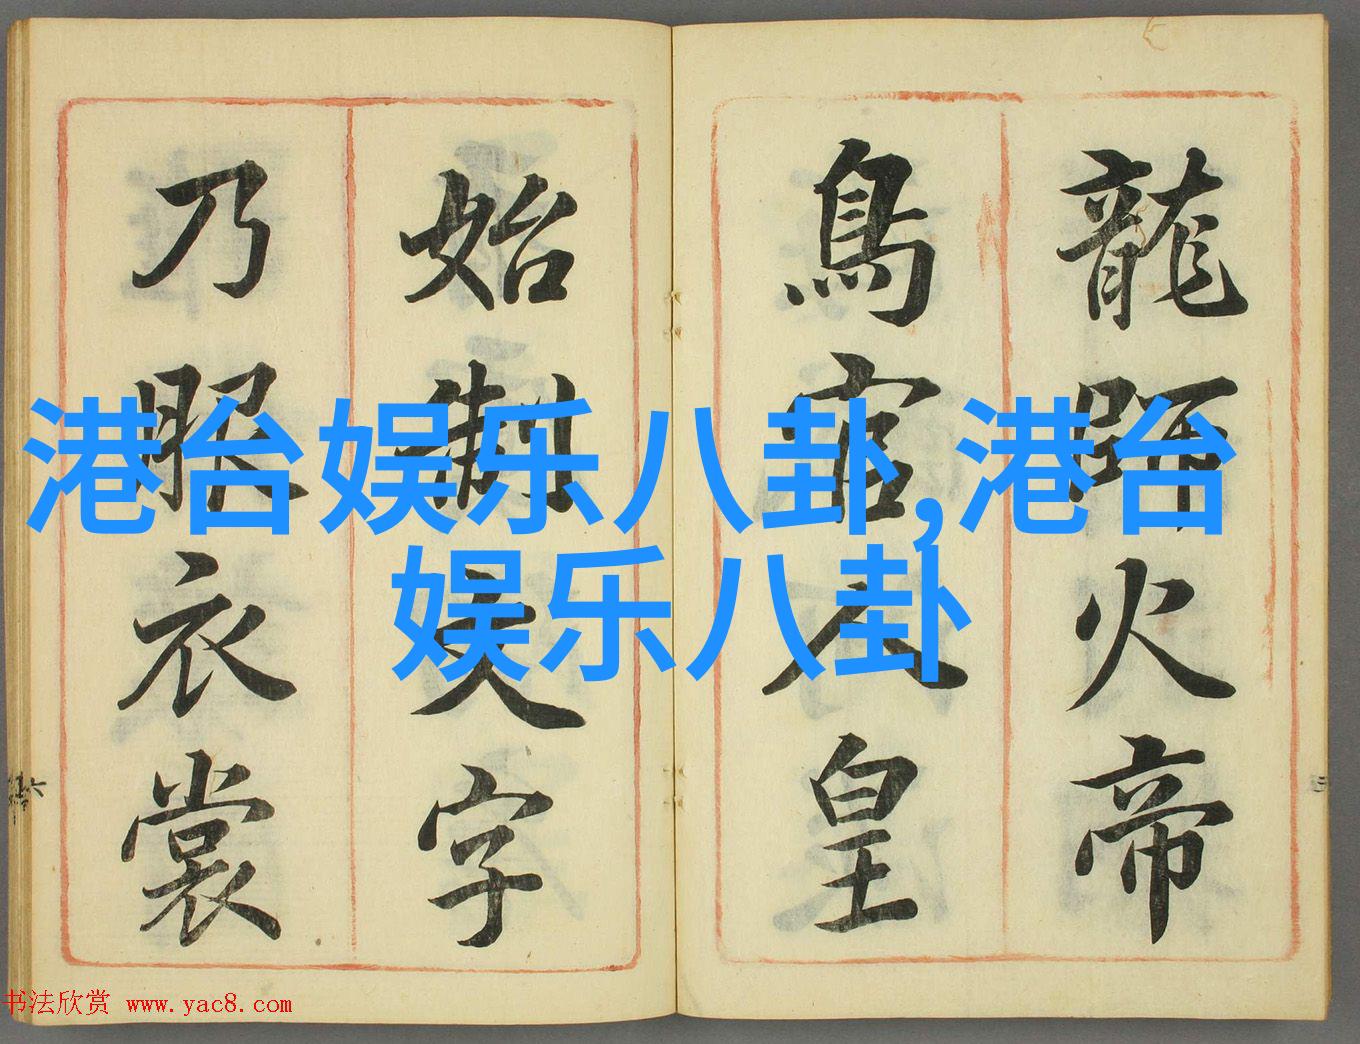 龍師火帝
鳥官人皇
始制文字
乃服衣裳
港台娱乐八卦,港台
娱乐八卦
书法欣赏 www.yac8.com